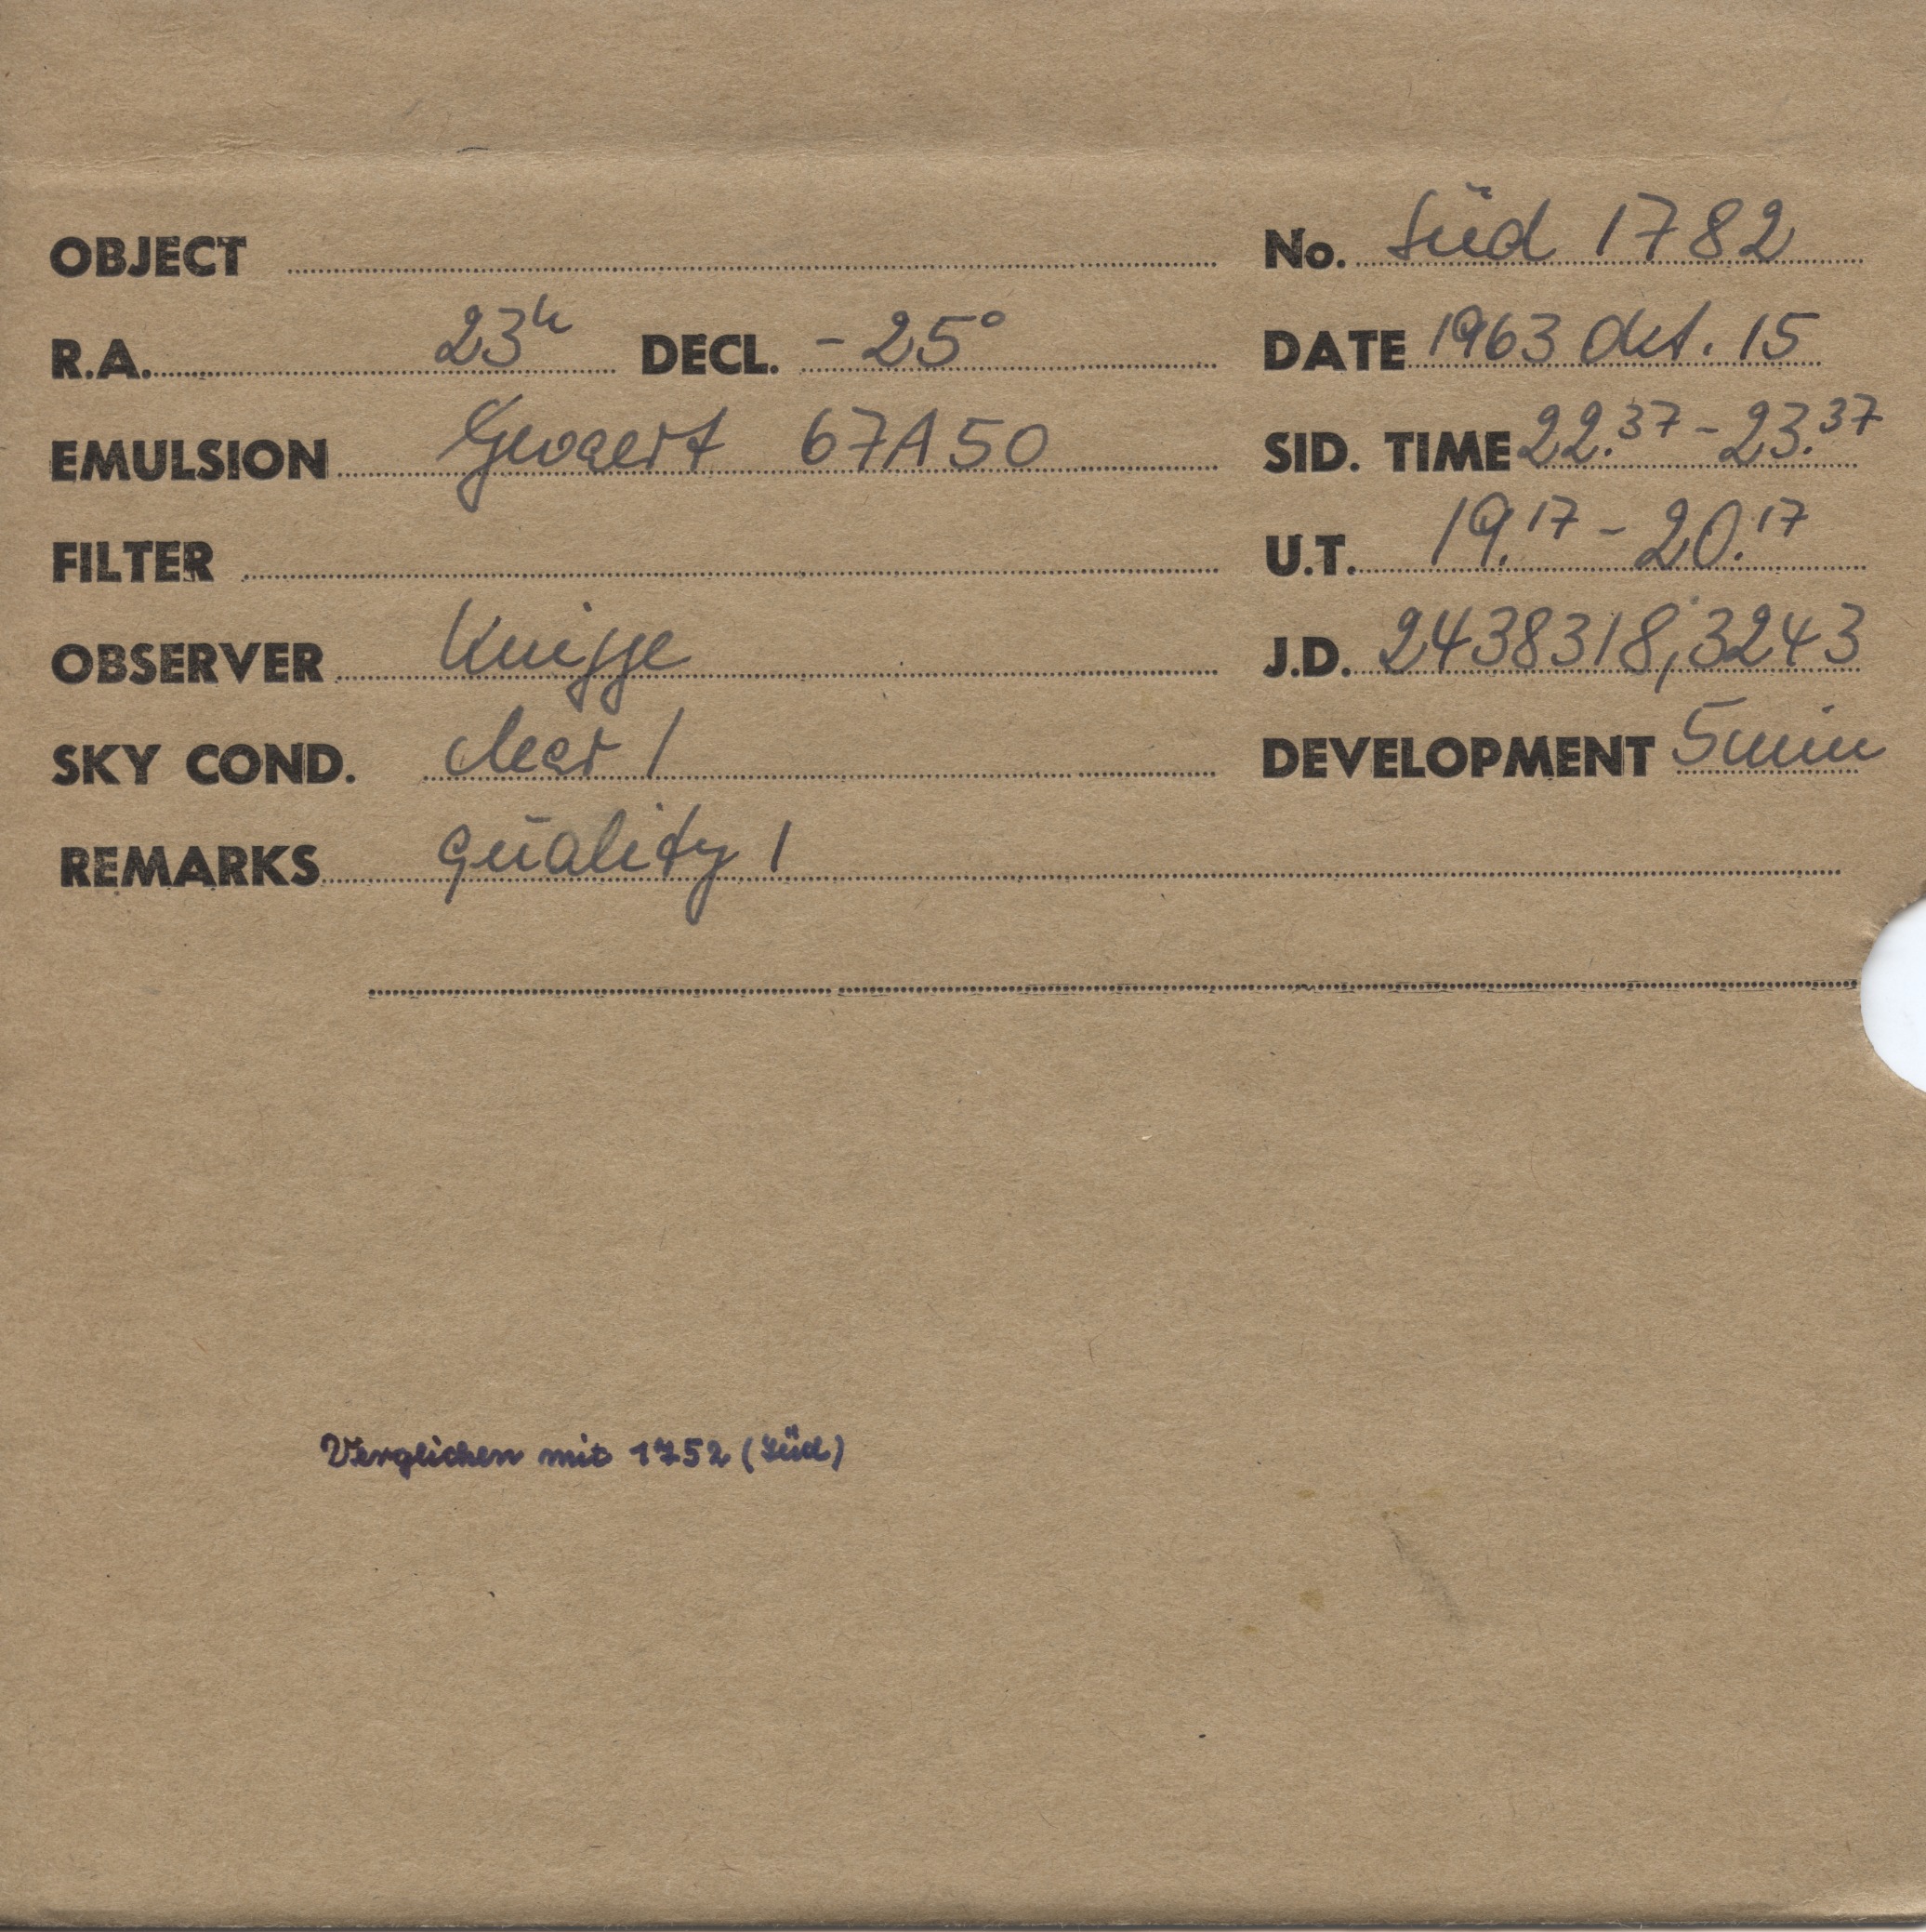 OBJECT No. Süd 1782
R.A. 23h DECL. -25° DATE 1963 Okt. 15
EMULSION Gevaert 67A50 SID. TIME 22.37 - 23.37
FILTER U.T. 19.17 - 20.17
OBSERVER Knigge J.D. 2438318,3243
SKY COND. clear 1 DEVELOPMENT 5 min
REMARKS quality 1
Verglichen mit 1752 (Süd)